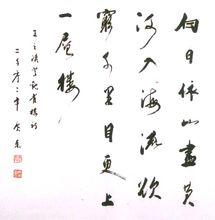 白日依山盡黄
河入海流欲
窮千里目更上
一層樓
王之渙登鸛雀樓詩